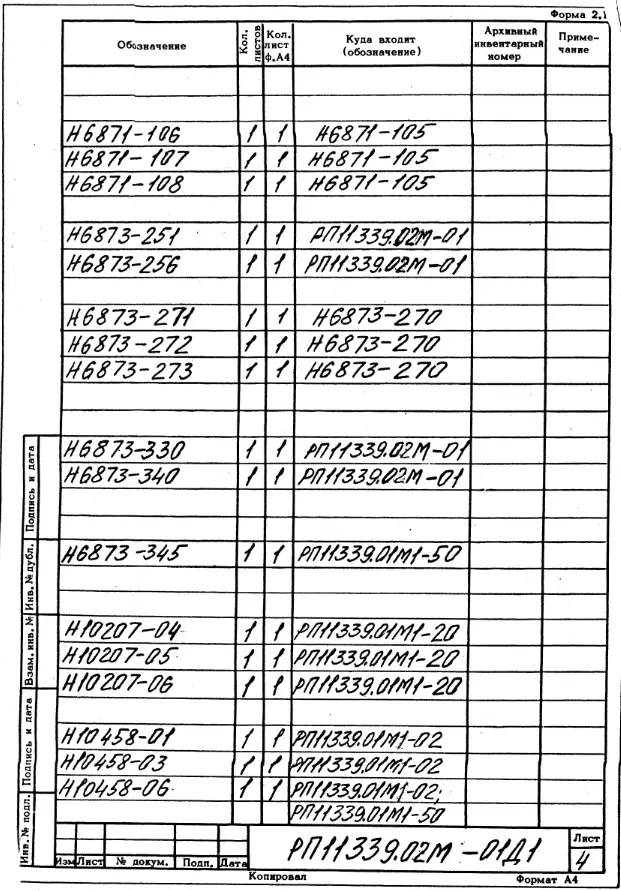 Форма 2.1
Обозначение Кол. листов Кол. лист ф.А4 Куда входит (обозначение) Архивный инвентарный номер Примечание
Н6871-106 1 1 Н6871-105
Н6871-107 1 1 Н6871-105
Н6871-108 1 1 Н6871-105
Н6873-251 1 1 РП11339.02М-01
Н6873-256 1 1 РП11339.02М-01
Н6873-271 1 1 Н6873-270
Н6873-272 1 1 Н6873-270
Н6873-273 1 1 Н6873-270
Н6873-330 1 1 РП11339.02М-01
Н6873-340 1 1 РП11339.02М-01
Н6873-345 1 1 РП11339.01М1-50
Н10207-04 1 1 РП11339.01М1-20
Н10207-05 1 1 РП11339.01М1-20
Н10207-06 1 1 РП11339.01М1-20
Н10458-01 1 1 РП11339.01М1-02
Н10458-03 1 1 РП11339.01М1-02
Н10458-06 1 1 РП11339.01М1-02;
РП11339.01М1-50
Инв. № подл. Подпись и дата Взам. инв. № Инв. № дубл. Подпись и дата
Изм Лист № докум. Подп. Дата
РП11339.02М-01Д1
Лист
4
Копировал Формат А4